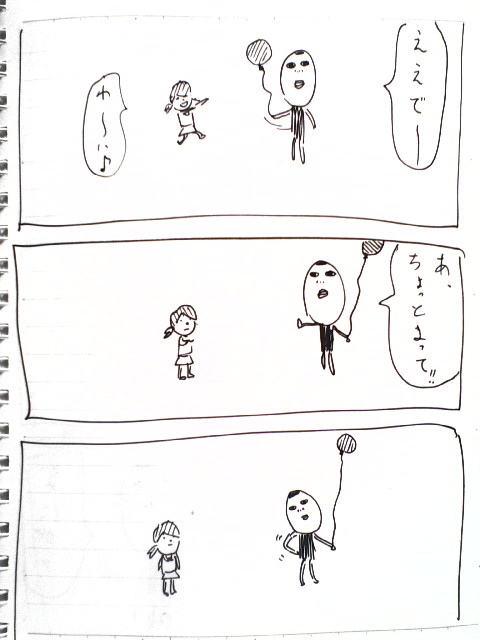 ええで〜
わ〜い♪
あ、
ちょっとまって!!